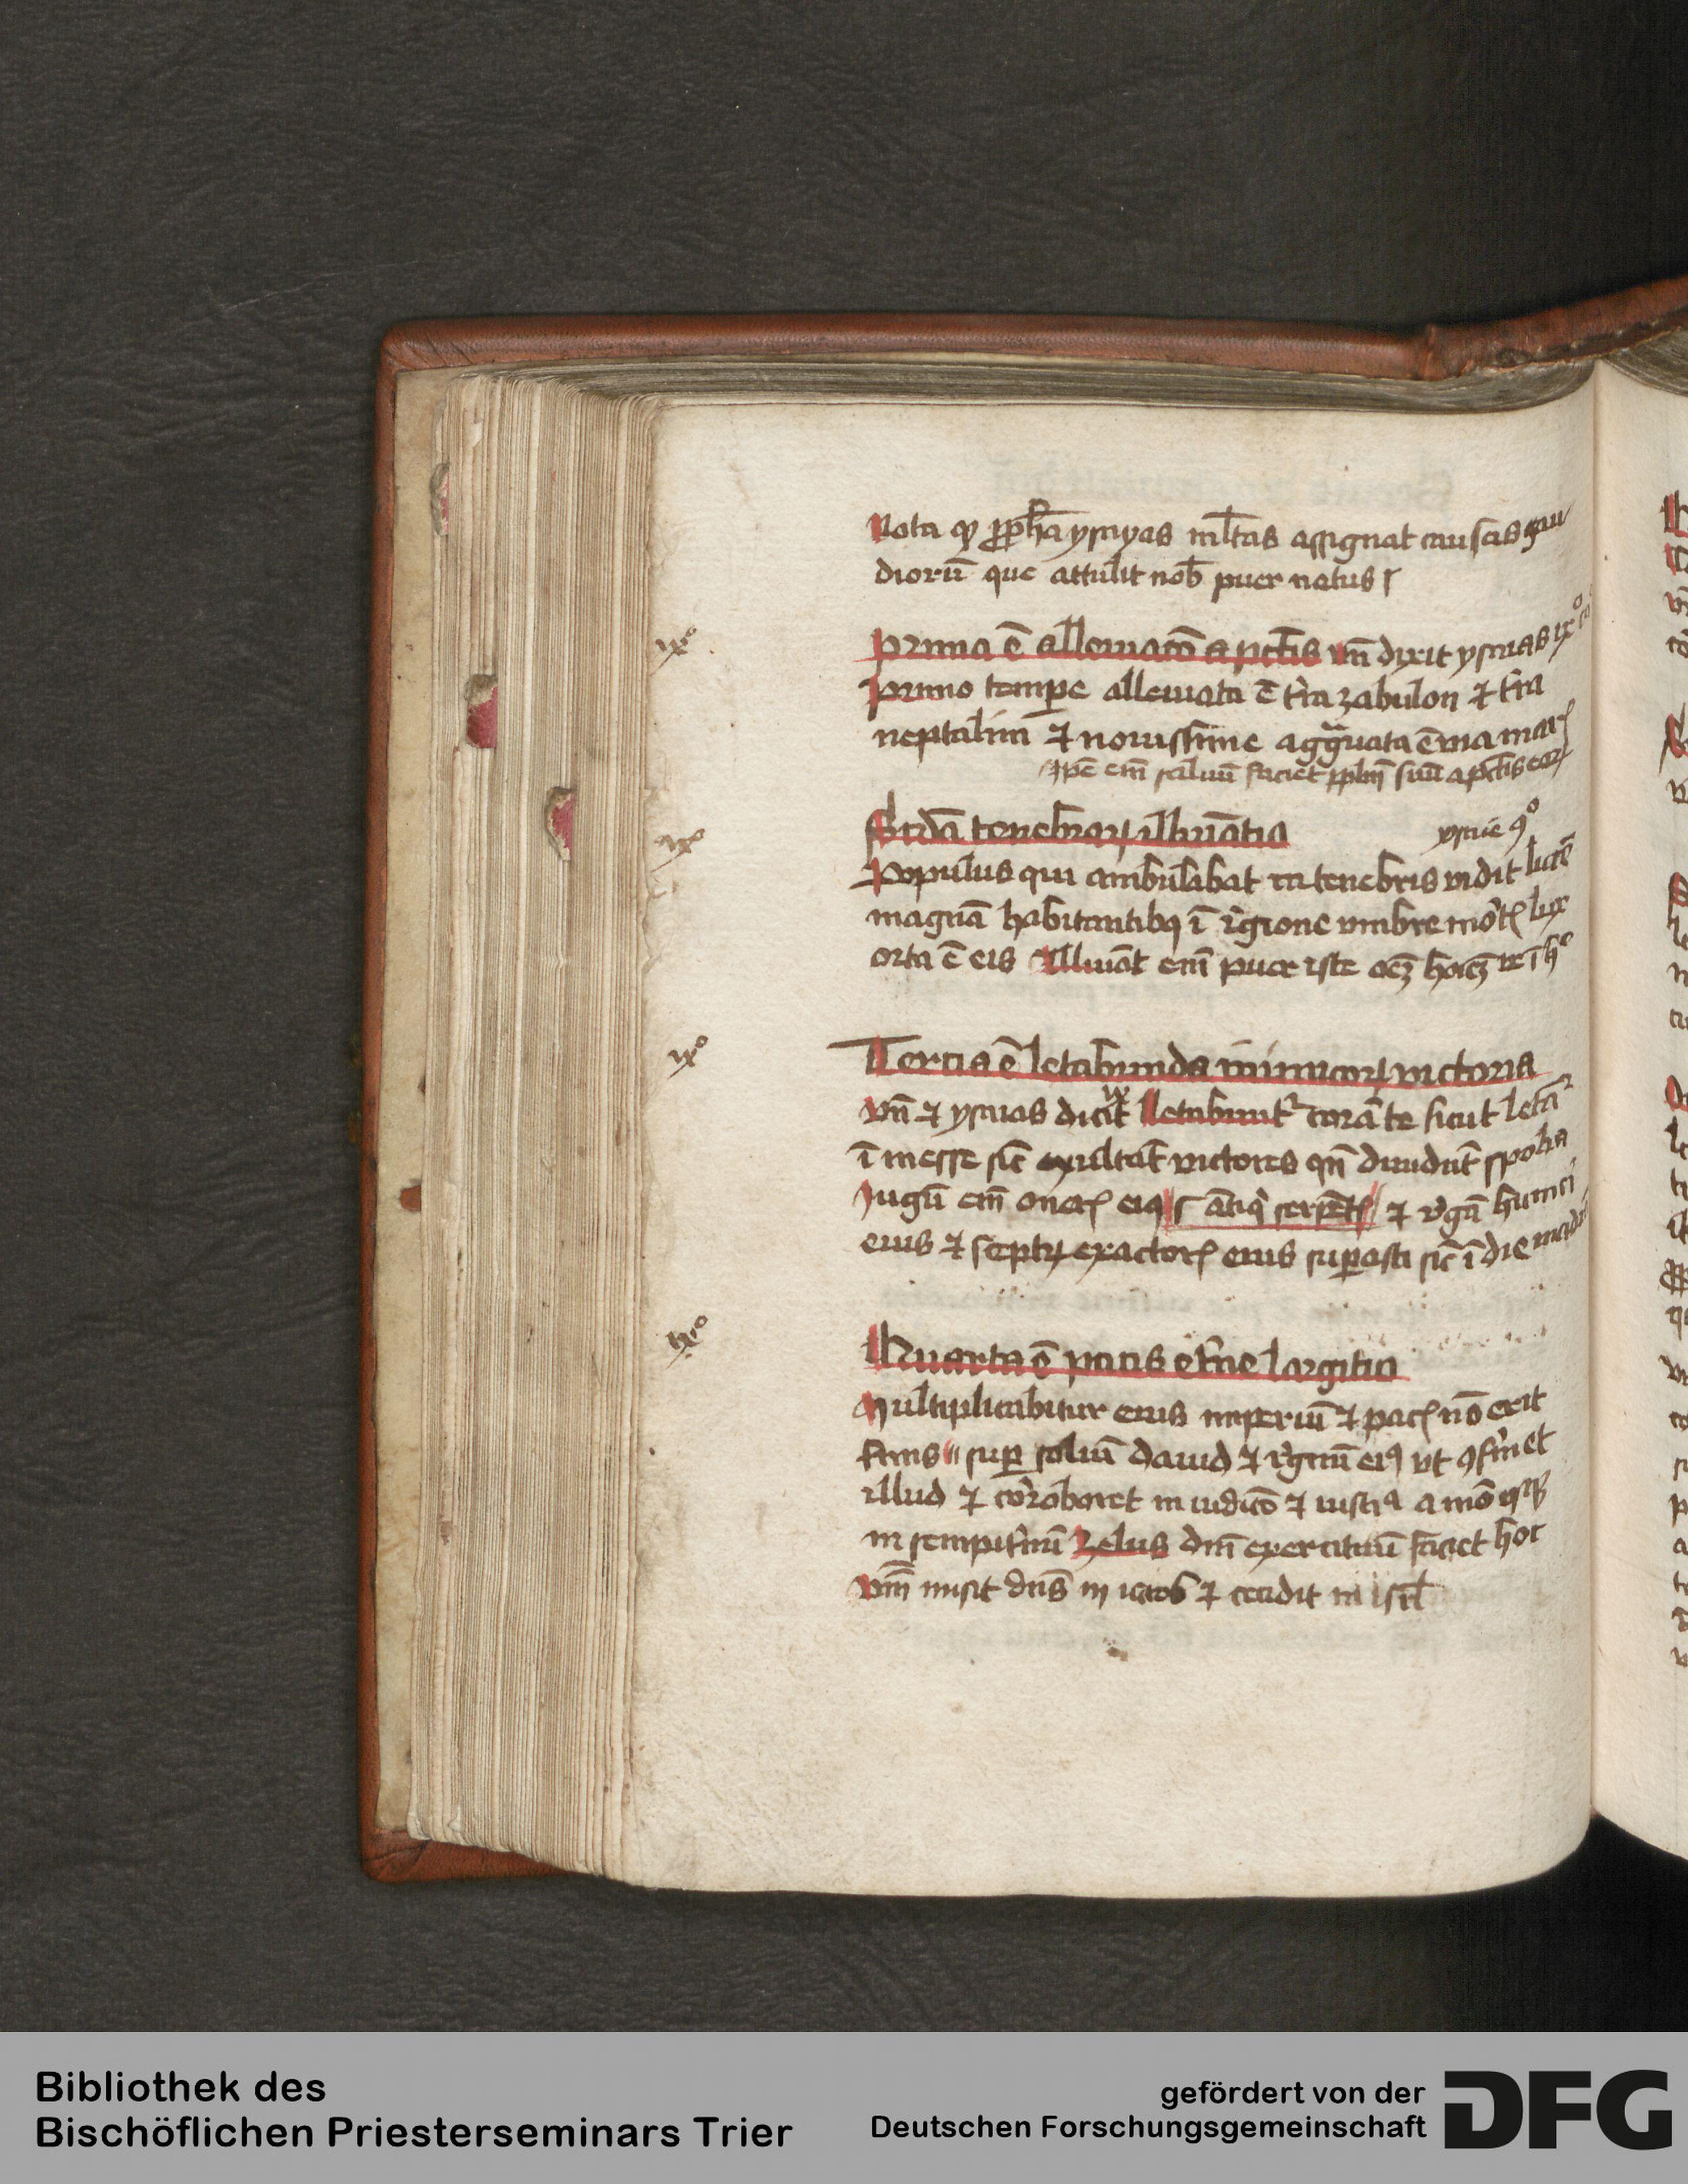 Nota qꝫ ꝓph̄a ysayas ml̄tas assignat causas gau
diorū que attulit nob̄ puer natus
ixº
Prima ē alleuiatō a pctīs vn̄ dixit ysaias ixº
primo tempe alleuiata ē tr̄a zabulon ⁊ tr̄a
neptalim ⁊ nouissime aggͣuata ē via maris
ipē em̄ saluū faciet pplm̄ suū a pctīs eoꝝ
ixº
Scdā tenebraꝝ illuīatio ysaie 9º
Populus qui ambulabat in tenebris vidit lucē
magnā habitantibꝫ ī rͥgione vmbre mortis lux
orta ē eis Illuīat em̄ puer iste oēꝫ hoīeꝫ
ixº
Tercia ē letabunda inimicoꝝ victoria
vn̄ ⁊ ysaias dicit ix letabunt᷑ corā te sicut letāt᷑
ī messe sic̄ exultāt victores qn̄ diuidūt spolia
Jugū em̄ oneris eiꝰ ātiqͥ serpētis ⁊ vͥgā humeri
eius ⁊ sceptꝝ exactoris eius supasti sic̄ ī die madiā
ixº
Quarta ē pacis etͥne largitio
Multiplicabitur eius imperiū ⁊ pacis nō erit
finis sup soliū dauid ⁊ rͥgnū eiꝰ vt ꝯfirmet
illud ⁊ corͦboret in iudicō ⁊ iusticͣ amō vsqꝫ
in sempitͥnū Zelus dnī exercituū faciet hoc
Vm̄ misit dn̄s in iacob ⁊ cecidit in isrl̄
Bibliothek des
Bischöflichen Priesterseminars Trier
gefördert von der
Deutschen Forschungsgemeinschaft
DFG